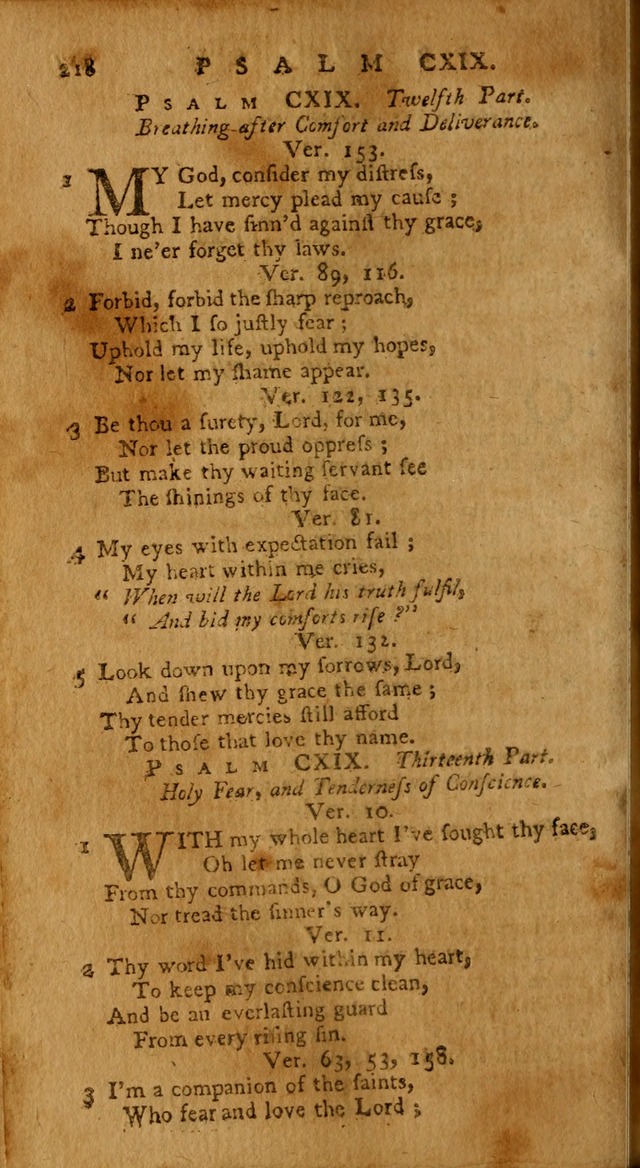 218 PSALM CXIX.
PSALM CXIX. Twelfth Part.
Breathing after Comfort and Deliverance.
Ver. 153.
1 MY God, conſider my diſtreſs,
Let mercy plead my cauſe ;
Though I have ſinn'd againſt thy grace,
I ne'er forget thy laws.
Ver. 89, 116.
2 Forbid, forbid the ſharp reproach,
Which I ſo juſtly fear ;
Uphold my life, uphold my hopes,
Nor let my ſhame appear.
Ver. 122, 135.
3 Be thou a ſurety, Lord, for me,
Nor let the proud oppreſs ;
But make thy waiting ſervant ſee
The ſhinings of thy face.
Ver. 81.
4 My eyes with expectation fail ;
My heart within me cries,
“ When will the Lord his truth fulfil,
“ And bid my comforts riſe ?”
Ver. 132.
5 Look down upon my ſorrows, Lord,
And ſhew thy grace the ſame ;
Thy tender mercies ſtill afford
To thoſe that love thy name.
PSALM CXIX. Thirteenth Part.
Holy Fear, and Tenderneſs of Conſcience.
Ver. 10.
1 WITH my whole heart I've ſought thy face,
Oh let me never ſtray
From thy commands, O God of grace,
Nor tread the ſinner's way.
Ver. 11.
2 Thy word I've hid within my heart,
To keep my conſcience clean,
And be an everlaſting guard
From every riſing ſin.
Ver. 63, 53, 158.
3 I'm a companion of the ſaints,
Who fear and love the Lord ;